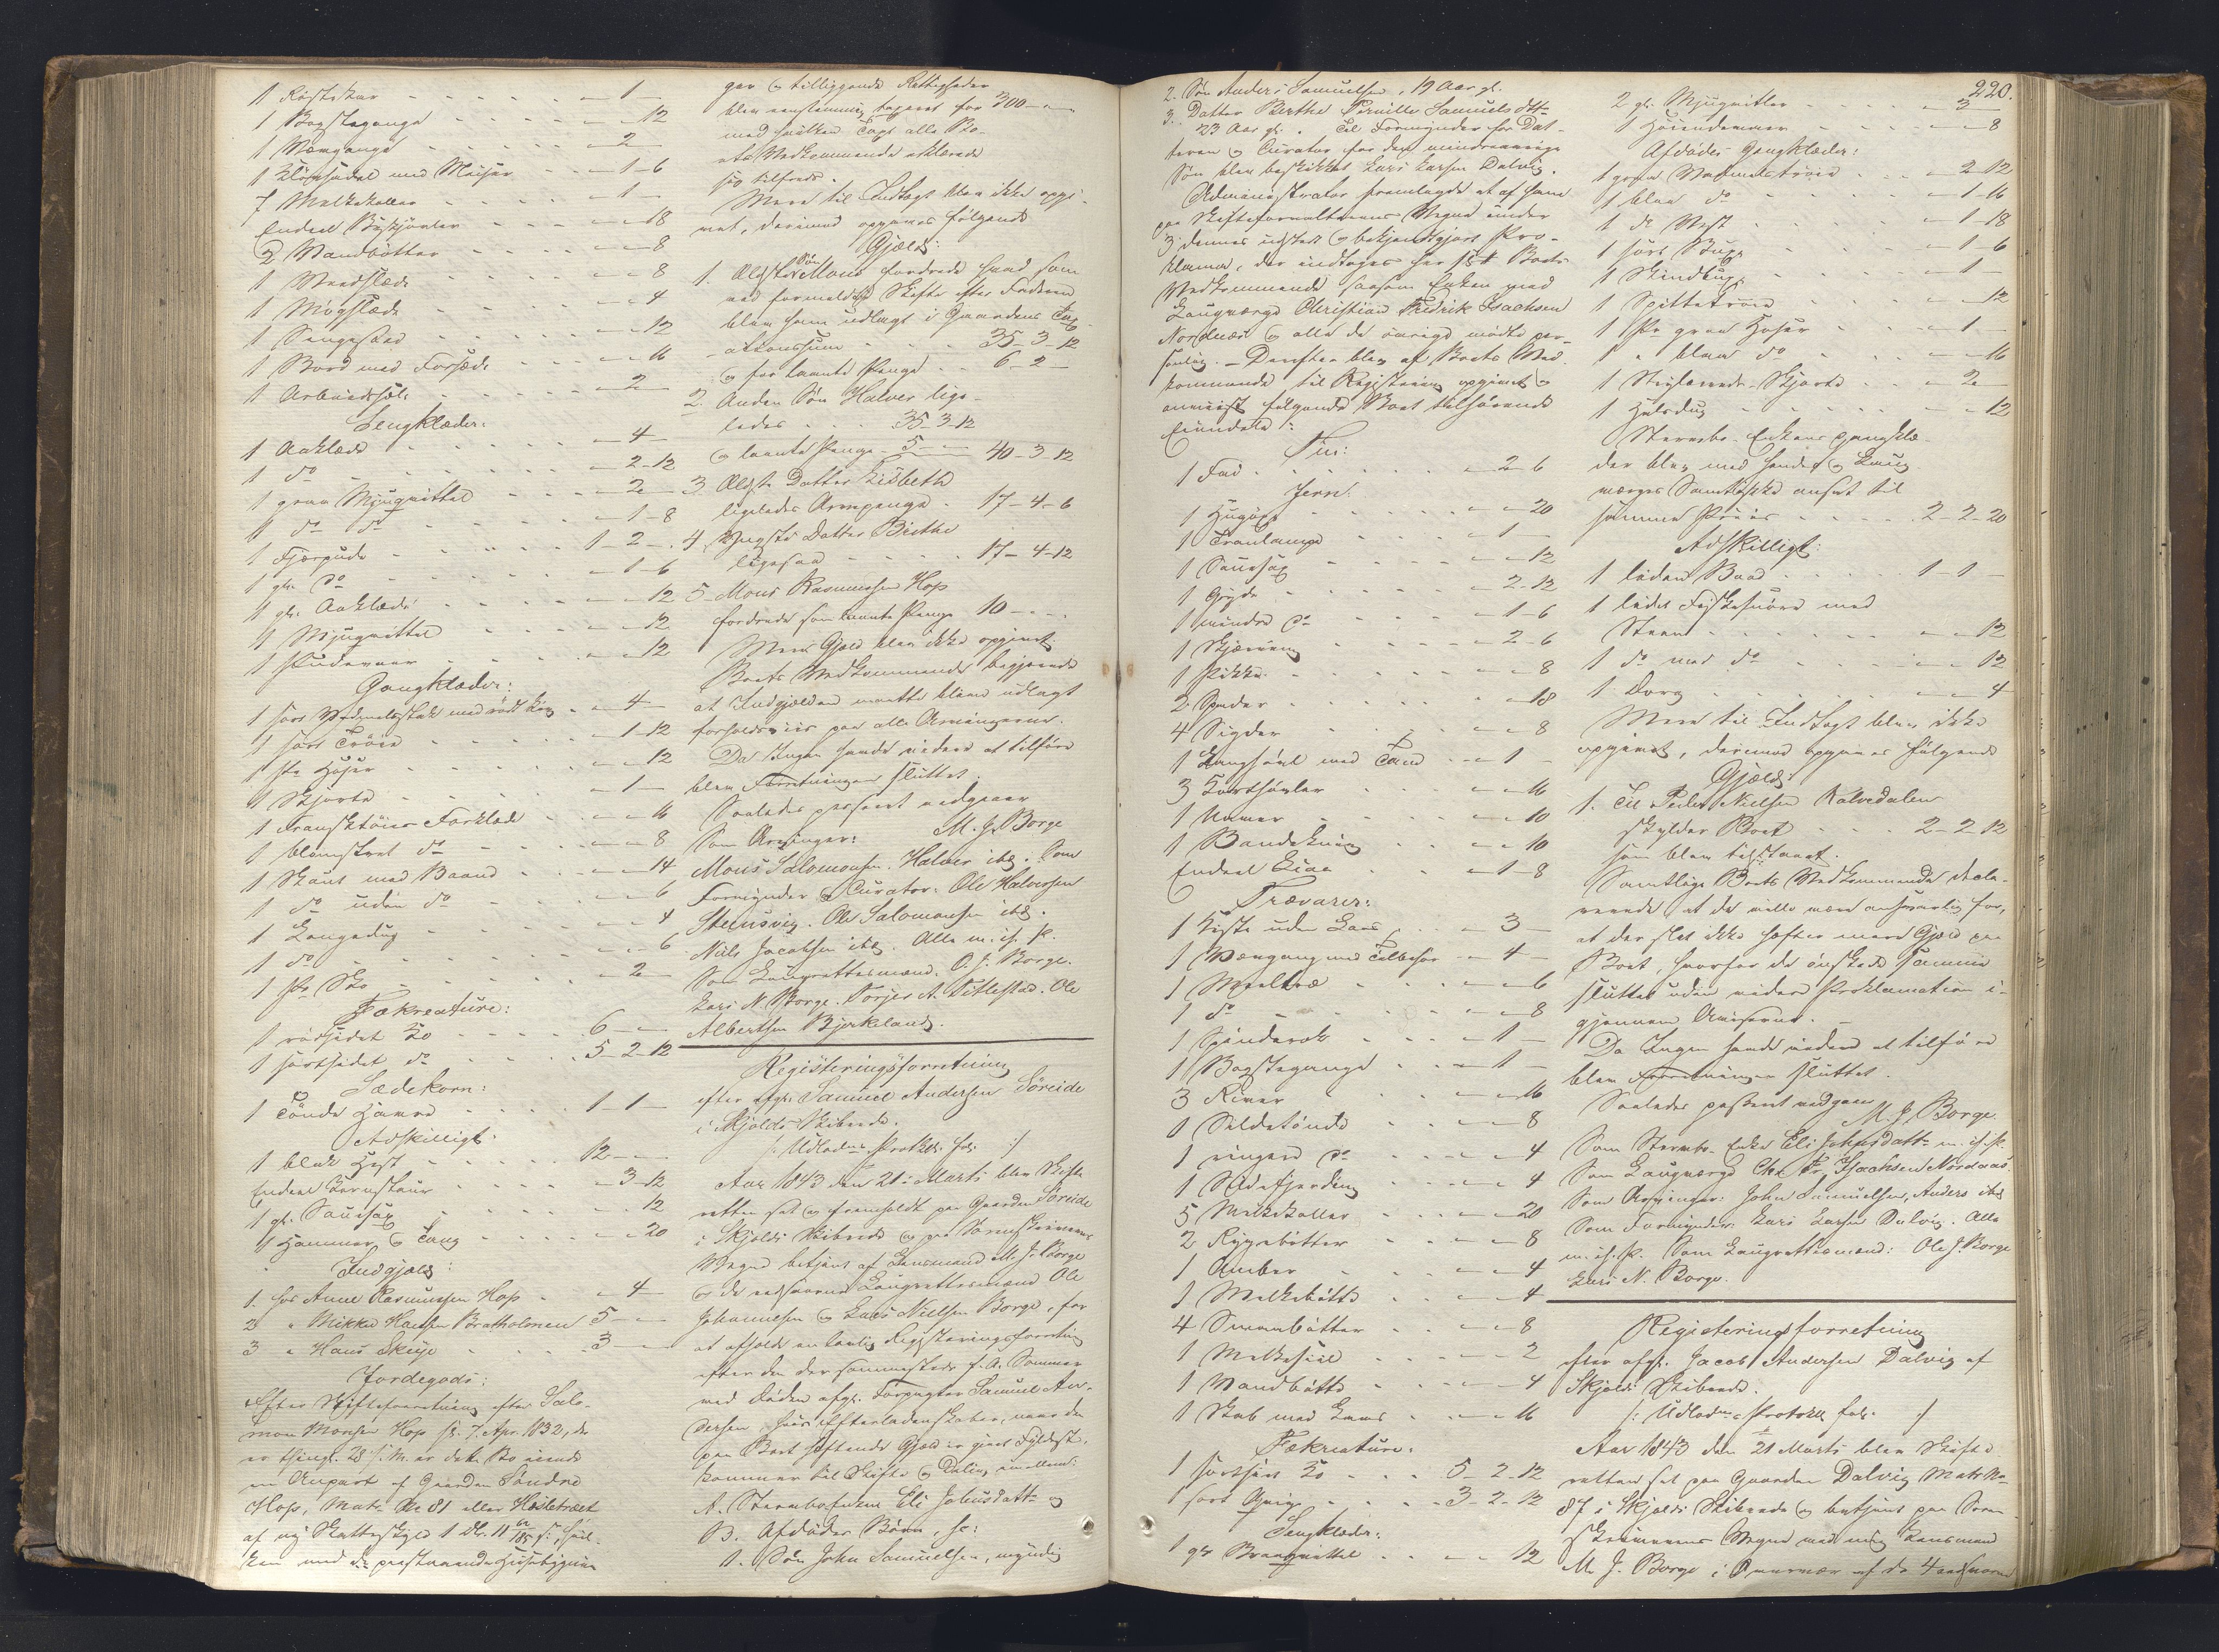 1 Ristekar - - - - 1 -
1 Bagstegange - - - 12
1 Vævgange - - - 2 -
1 Kløvsadel med Meiser - - 1-6
7 Melkekoller - - - 1 -
Endeel Bøkjørler - - - 18
2 Vandbøtter - - - 8
1 Vandslæde - - - 8
1 Møgslæde - - - 4
1 Sengested - - - 12
1 Bord med Forsæde - - - 16
1 Arbeids - - - 2 -
Sengklæder:
1 Aaklæde - - - 4 -
1 do - - - 2-12
1 graa Mjugvittel - - - 2 -
1 do do - - - 1-8
1 Fjærpude - - - 1-2-
1 gl. do - - - 1-6
1 gl. Aaklæde - - - 12
1 Mjugvittel - - - 12
1 Pudevaar - - - 12
Gangklæder:
1 sort Vadmelsstak med rødt - - 4 -
1 sort Trøie - - - 1-12
1 Pr Hoser - - - 12
1 Skjorte - - - 1 -
1 Fransktøies Forklæde - - 16
1 blomstret do - - - 8
1 Skaut med Baand - - - 14
1 do uden do - - - 6
1 Langedug - - - 4
1 do - - - 6
1 Pr Sko - - - 2 -
Fækreature:
1 rødsidet Ko - - - 6 -
1 sortsidet do - - - 5-2-12
Sædekorn:
1 Tønde Havre - - - 1-1-
Adskilligt:
1 blak Hest - - - 12 -
Endeel Kornstaur - - - 3-12
1 gl. Sauesax - - - 12
1 Hammer & Tang - - - 20
Indgjæld:
1. hos Anne Rasmussen Hop - - 4 -
2 " Mikkel Hansen Bratholmen 5 -
3 " Hans Skuje - - - 3 -
Jordegods:
Efter Skifteforretning efter Salo-
mon Monsen Hop sl. 7. Apr. 1832, der
er thingl. 28 s. M. er dette Bo eiende
en Anpart af Gaarden Søndre
Hop, Matr. No 81 eller Hesletræet
af ny Skatteskyld 1 dr. 11 s; hvil-
ken med de paastaaende Huusbygnin
ger & tilliggende Rettigheder
blev eenstemmig taxeret for 300 - -
med hvilken Taxt alle Bo-
ets Vedkommende erklærede
sig tilfreds.
Mere til Indtægt blev ikke opgi-
vet, derimod opgaves følgende
Gjæld:
1. Ældste Søn Mons fordrede hvad som
ved formeldte Skifte efter Faderen
blev ham udlagt i Gaardens Tax-
ationssum - - 35-3-12
& for laante Penge - - 6-2-
2. Anden Søn Halver lige-
ledes - - - 35-3-12
& laante Penge - 5 - - 40-3-12
3. Ældste Datter Lisbeth
ligeledes Arvepenge - 17-4-6
4. Yngste Datter Birthe
ligesaa - - - 17-4-12
5. Mons Rasmussen Hop
fordrede som laante Penge 10 - -
Mere Gjæld blev ikke opgivet.
Boets Vedkommende begjærede
at Indgjælden maatte blive udlagt
forholdsviis paa alle Arvingerne.
Da Ingen havde videre at tilføre
blev Forretningen sluttet.
Saaledes passeret vedgaaer
Som Arvinger: M. J. Borge
Mons Salomonsen. Halver ibd. Som
Formynder & Curator: Ole Halversen
Steensvig. Ole Salomonsen ibd.
Niels Jacobsen ibd. Alle m. i. P.
Som Laugrettesmænd: O. J. Borge.
Lars N. Borge. Torjer A. Titlestad. Ole
Albertsen Bjerkeland.
Registeringsforretning
efter afgl. Samuel Andersen Søreide
i Skjolds Skibrede.
/: Udlodns Protkl. fol: :/
Aar 1843 den 21: Marts blev Skifte
retten sat & fremholdt paa Gaarden Søreide
i Skjolds Skibrede & paa Sorenskriverens
Vegne betjent af Lensmand M. J. Borge
& de edsvorne Laugrettesmænd Ole
Johannesen & Lars Nielsen Borge, for
at afholde en lovlig Registeringsforretning
efter den der sammesteds f. A. Sommer
ved Døden afgl. Forpagter Samuel An-
dersen hans Efterladenskaber, naar den
paa Boet heftende Gjæld er givet Fyldest,
kommer til Skifte & Deling imellem:
A. Stervboenken Eli Johnsdattr &
B. Afdødes Børn, sc:
1. Søn John Samuelsen, myndig
220.
2. Søn Anders Samuelsen, 19 Aar gl.
3. Datter Berthe Pernille Samuelsdtt-
23 Aar gl. Til Formynder for Dat-
teren & Curator for den mindreaarige
Søn blev beskikket Lars Larsen Dalvig.
Administrator fremlagde et af ham
paa Skifteforvalterens Vegne under
3. dennes udstedt & bekjendtgjort Pro-
klama, der indtages her. Boets
Vedkommende saasom Enken med
Laugværge Christian Fredrik Isachsen
Nordaas & alle de øvrige mødte per-
sonlig. - Derefter blev af Boets Ved-
kommende til Registering opgivet &
anviist følgende Boet tilhørende
Eiendele:
Tin:
1 Fad - - - 2-6
Jern:
1 Hugøxe - - - 20
1 Tranlampe - - - 1 -
1 Sauesax - - - 12
1 Gryde - - - 2-12
1 mindre do - - - 1-6
1 Skjæreng - - - 2-6
1 Pikke - - - 8
2 Spader - - - 18
4 Sigder - - - 8
1 Langhøvl med Tand - - 1 -
3 Korthøvler - - - 16
1 Naver - - - 10
1 Baandekniv - - - 10
Endeel Liaae - - - 1-8
Trævarer:
1 Kiste uden Laas - - - 3 -
1 Vævgang med Tilbehør - - 4 -
1 Meeltræ - - - 6
1 do - - - 8
1 Spinderok - - - 1 -
1 Bagstegange - - - 1 -
3 River - - - 16
1 Sildetønde - - - 8
1 ringere do - - - 4
1 Sildefjerding - - - 4
5 Melkekoller - - - 20
2 Rygrebøtter - - - 8
1 Amber - - - 4
1 Melkebøtte - - - 4
4 Smaabøtter - - - 8
1 Melkesiil - - - 2
1 Vandbøtte - - - 4
1 Skab med Laas - - - 16
Fækreature:
1 sortsiet Ko - - - 5-2-12
1 sort Qvige - - - 3-2-12
Sengklæder:
1 gl. Brangvittel - - - 12
2 gl. Mjugvitler - - - 3 -
1 Høiendevaar - - - 8
Afdødes Gangklæder:
1 graa Vadmelstrøie - - - 2-12
1 blaa do - - - 1-16
1 do Vest - - - 1-18
1 sort Buxe - - - 1-6
1 Skindbuxe - - - 1 -
1 Spittetrøie - - - 12
1 Pr graa Hoser - - - 1 -
1 " blaa do - - - 16
1 Strielærreds-Skjorte - - - 2 -
1 Halsdug - - - 12
Stervbo-Enkens Gangklæ-
der blev med hendes & Laug-
værges Samtykke ansat til
samme Priis - - - 2-2-20
Adskilligt:
1 liden Baad - - - 1-1-
1 lidet Fiskesnøre med
Steen - - - 12
1 do med do - - - 12
1 Dorg - - - 4
Mere til Indtægt blev ikke
opgivet, derimod opgaves følgende
Gjæld:
1. Til Peder Nielsen Kalvedalen
skylder Boet - - - 2-2-12
som blev tilstaaet.
Samtlige Boets Vedkommende decla-
rerede, at de ville være ansvarlig for,
at der slet ikke hefter mere Gjæld paa
Boet, hvorfor de ønskede samme
sluttet uden videre Proklamation i-
gjennem Aviserne. -
Da Ingen havde videre at tilføre
blev Forretningen sluttet.
Saaledes passeret vedgaaer M. J. Borge.
Som Stervbo-Enke Eli Johnsdattr m. i. P.
Som Laugværge Chr. Fr. Isachsen Nordaas.
Som Arvinger: John Samuelsen, Anders ibd.
Som Formynder: Lars Larsen Dalvig. Alle
m. i. P. Som Laugrettesmænd: Ole J. Borge
Lars N. Borge.
Registeringsforretning
efter afgl. Jacob Andersen Dalvig af
Skjolds Skibrede.
/: Udlodns Protokll fol: :/
Aar 1843 den 21 Marts blev Skifte
retten sat paa Gaarden Dalvig Matr No
87 i Skjolds Skibrede & betjent paa Soren-
skriverens Vegne ved mig Lensmand
M. J. Borge i Overvær af de 4 edsvorne